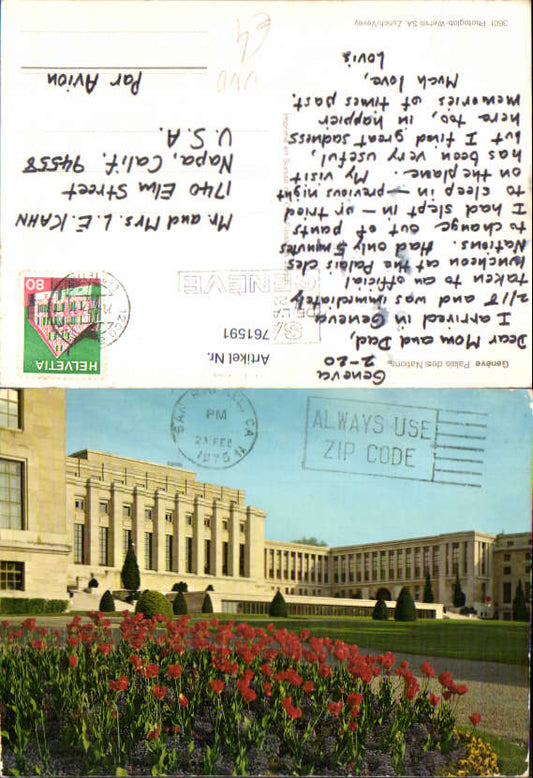 Genève Palais des Nations
Artikel Nr.
761591
Geneva
2-20
Dear Mom and Dad,
I arrived in Geneva
2/18 and was immediately
taken to an official
luncheon at the Palais des
Nations. Had only 5 minutes
to change out of pants
I had slept in - or tried
to sleep in - previous night
on the plane. My visit
has been very useful,
but I find great sadness
here too, in happier
memories of times past.
Much love,
Lovis
3601 Photoglob-Wehrli SA, Zürich/Vevey
GENÈVE
HELVETIA
80
Mr. and Mrs. L. E. KAHN
1740 Elm Street
Napa, Calif. 94558
U. S. A.
Par Avion
PM
23 FEB
1975
ALWAYS USE
ZIP CODE